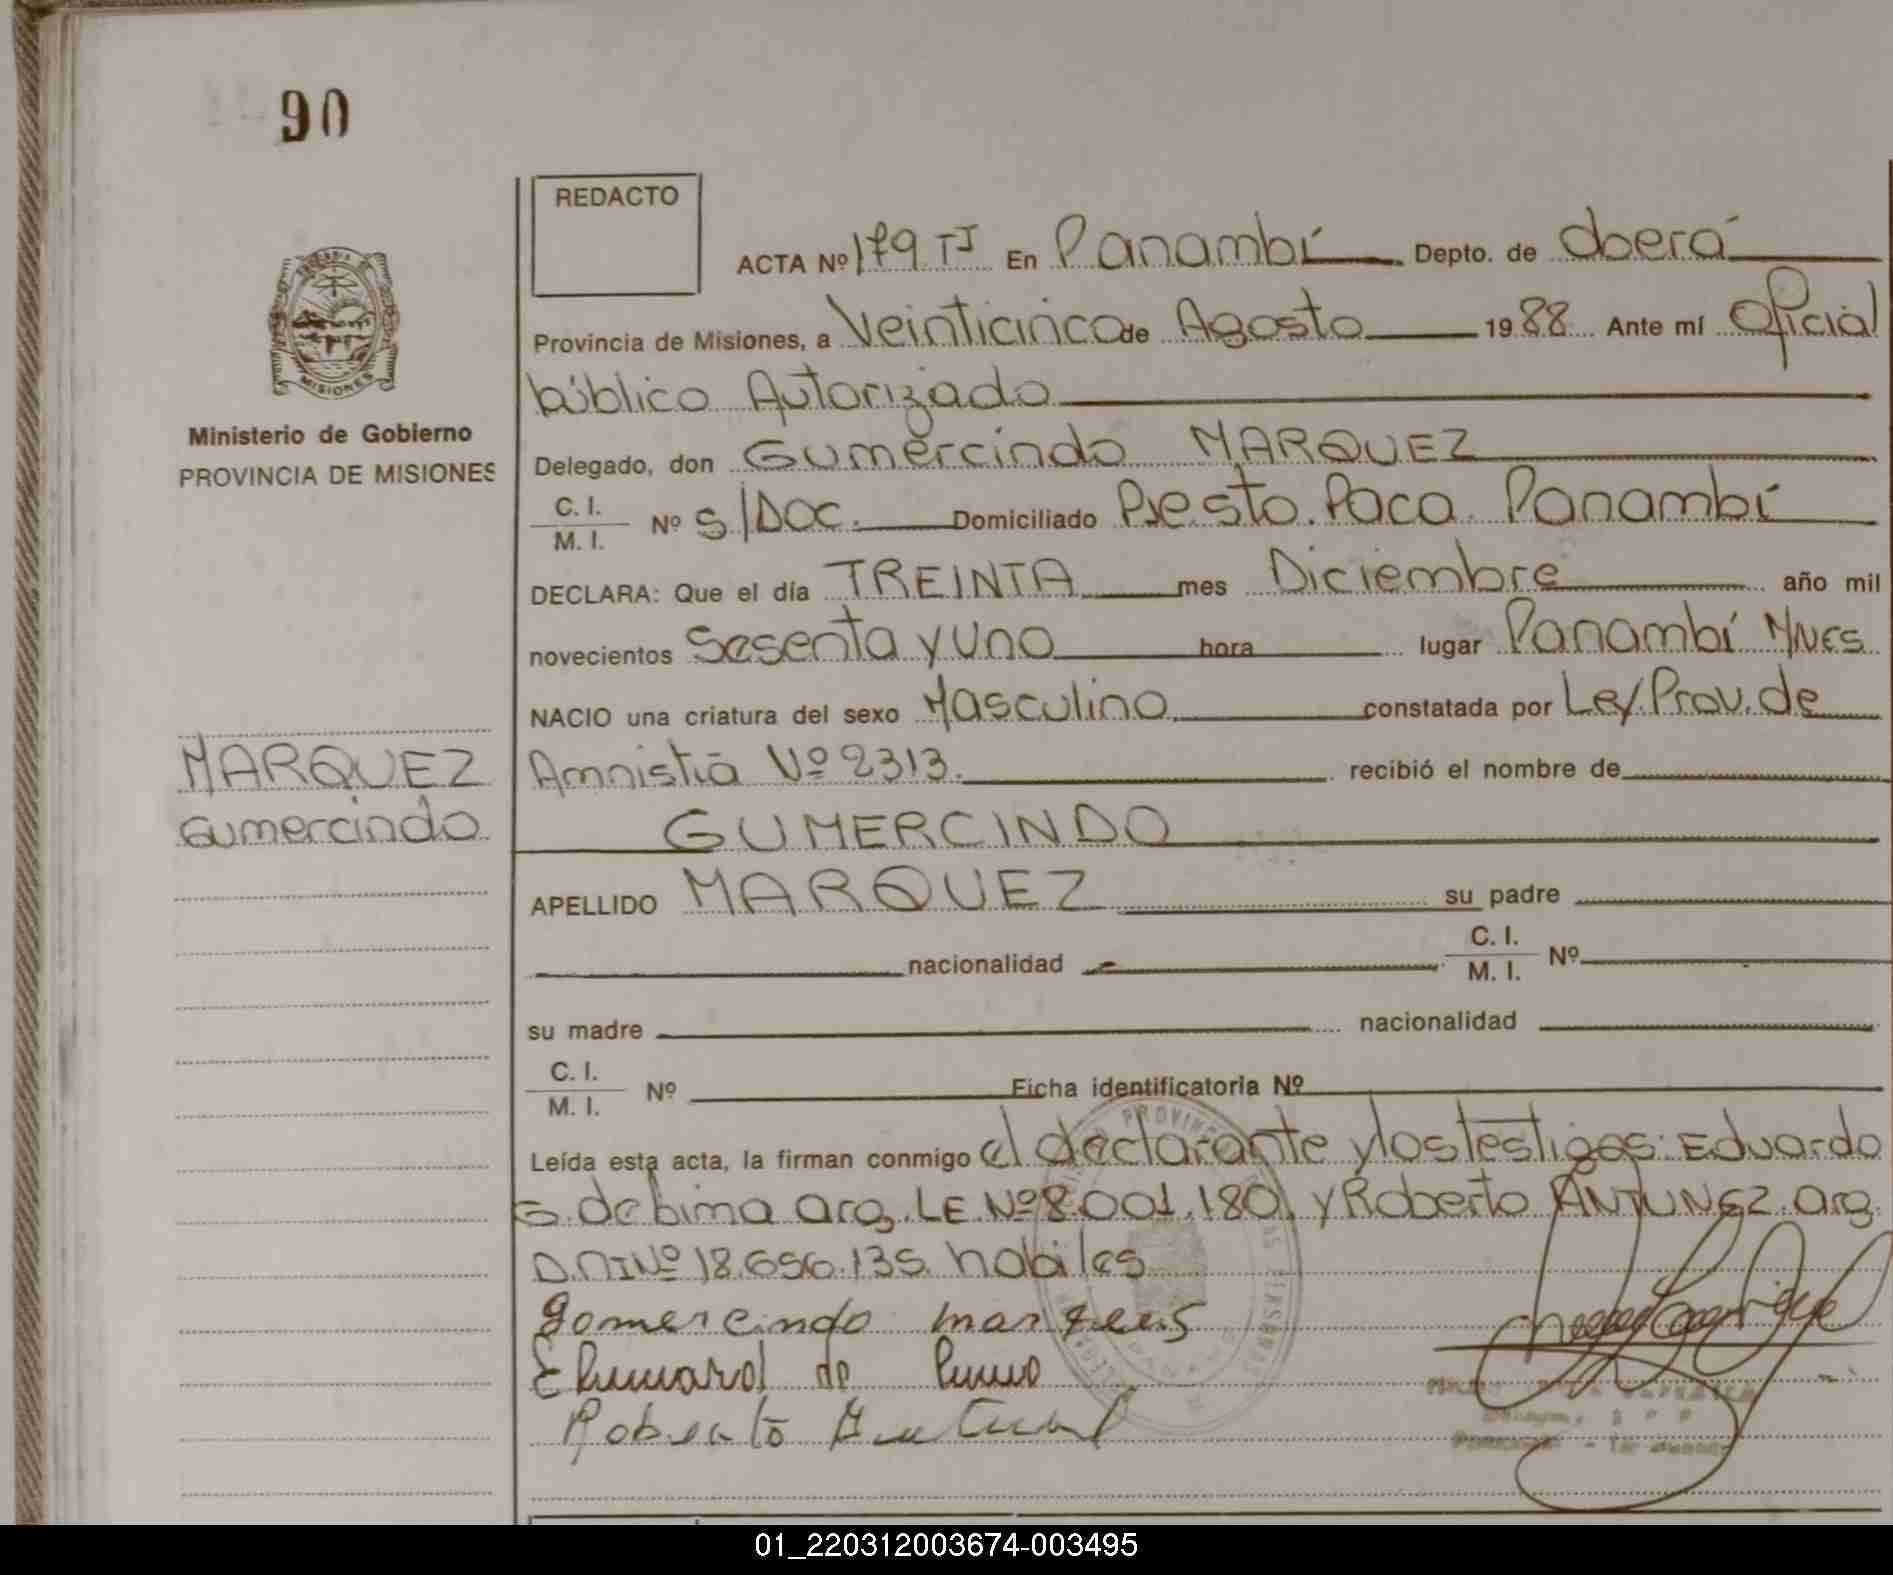 90
REDACTO
ACTA Nº 179 TJ En Panambí Depto. de Oberá
Provincia de Misiones, a Veinticinco de Agosto 1988 Ante mí Oficial
público Autorizado
Delegado, don Gumercindo MARQUEZ
C. I.
M. I. Nº S/DOC. Domiciliado Pje. Sto. Paca Panambí
DECLARA: Que el día TREINTA mes Diciembre año mil
novecientos Sesenta y Uno hora lugar Panambí Mnes
NACIO una criatura del sexo Masculino constatada por Ley. Prov. de
Amnistía Nº 2313. recibió el nombre de
GUMERCINDO
APELLIDO MARQUEZ su padre
nacionalidad C. I.
M. I. Nº
su madre nacionalidad
C. I.
M. I. Nº Ficha identificatoria Nº
Leída esta acta, la firman conmigo el declarante y los testigos: Eduardo
G. de Lima arg. LE. Nº 8.001.180, y Roberto ANTUNEZ. arg.
D.NI Nº 18.656.135. habiles
Gomercindo marques
Roberto
MISIONES
Ministerio de Gobierno
PROVINCIA DE MISIONES
MARQUEZ
Gumercindo
01_220312003674-003495